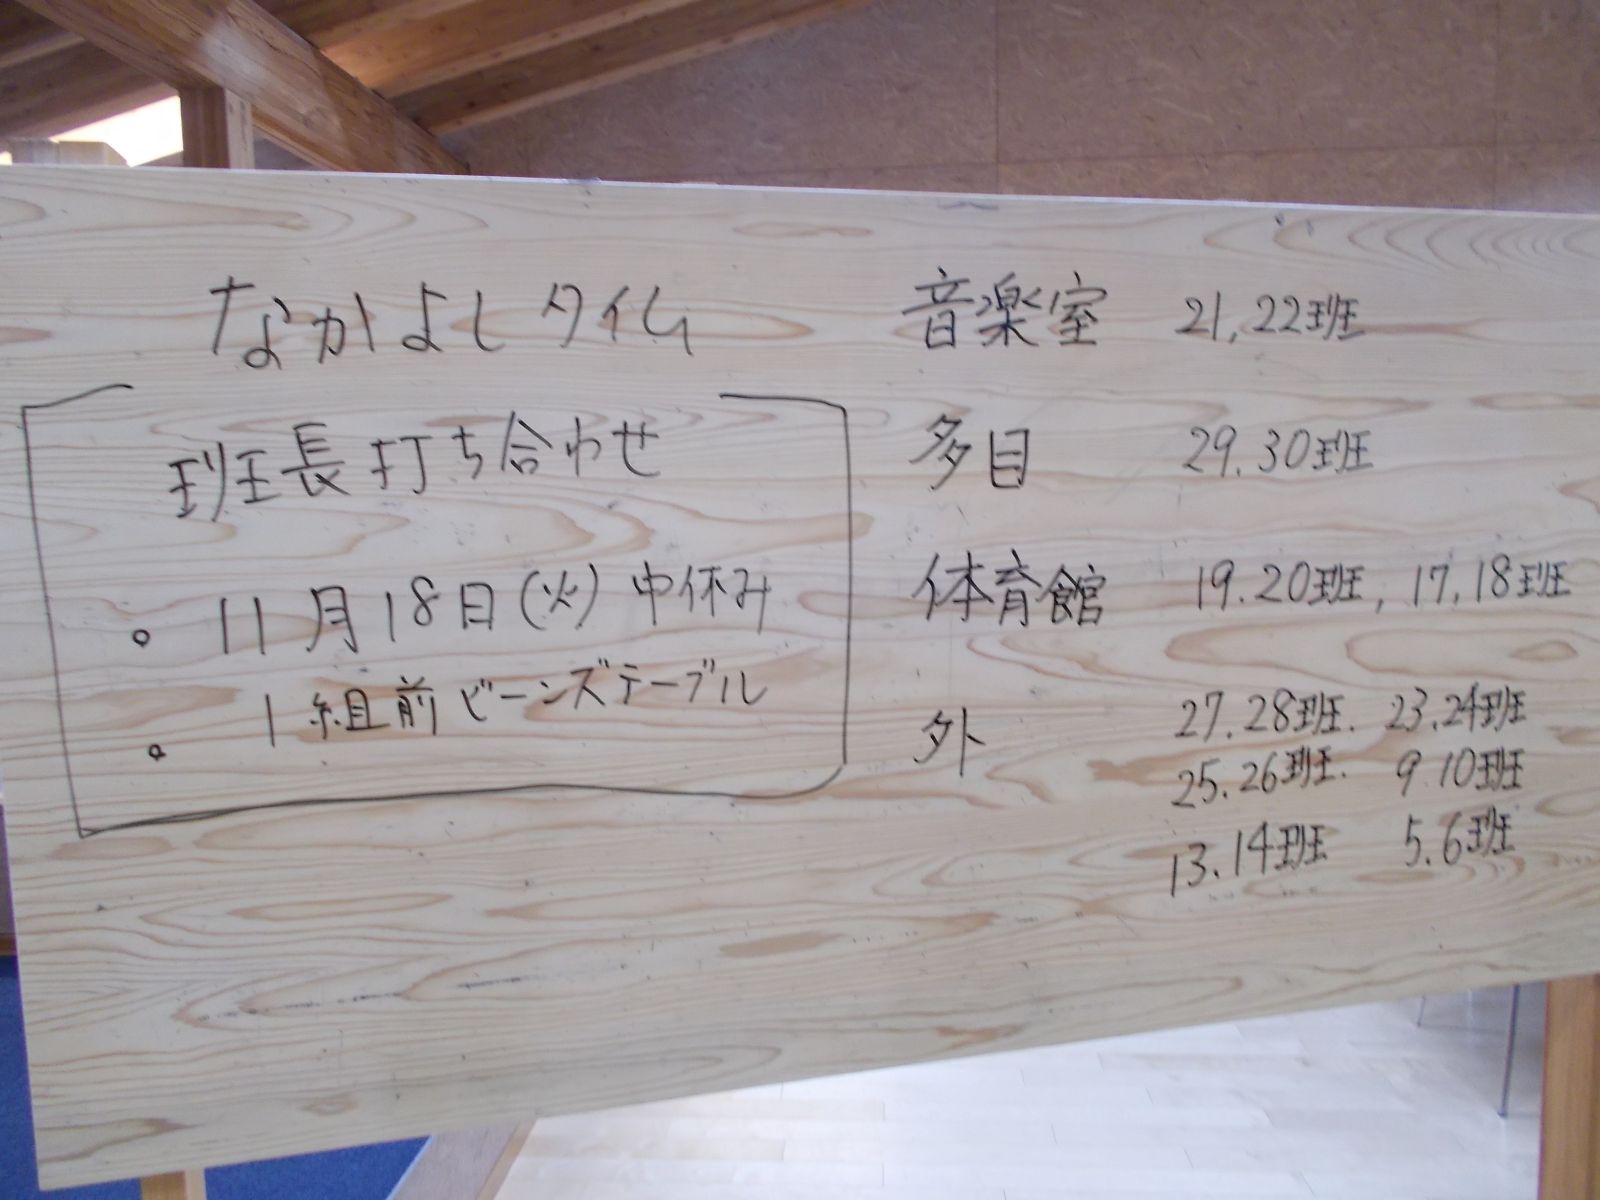 なかよしタイム
班長打ち合わせ
。11月18日(火)中休み
。1組前ビーンズテーブル
音楽室 21,22班
多目 29.30班
体育館 19.20班,17,18班
外 27.28班.23.24班
25.26班.9 10班
13.14班 5.6班